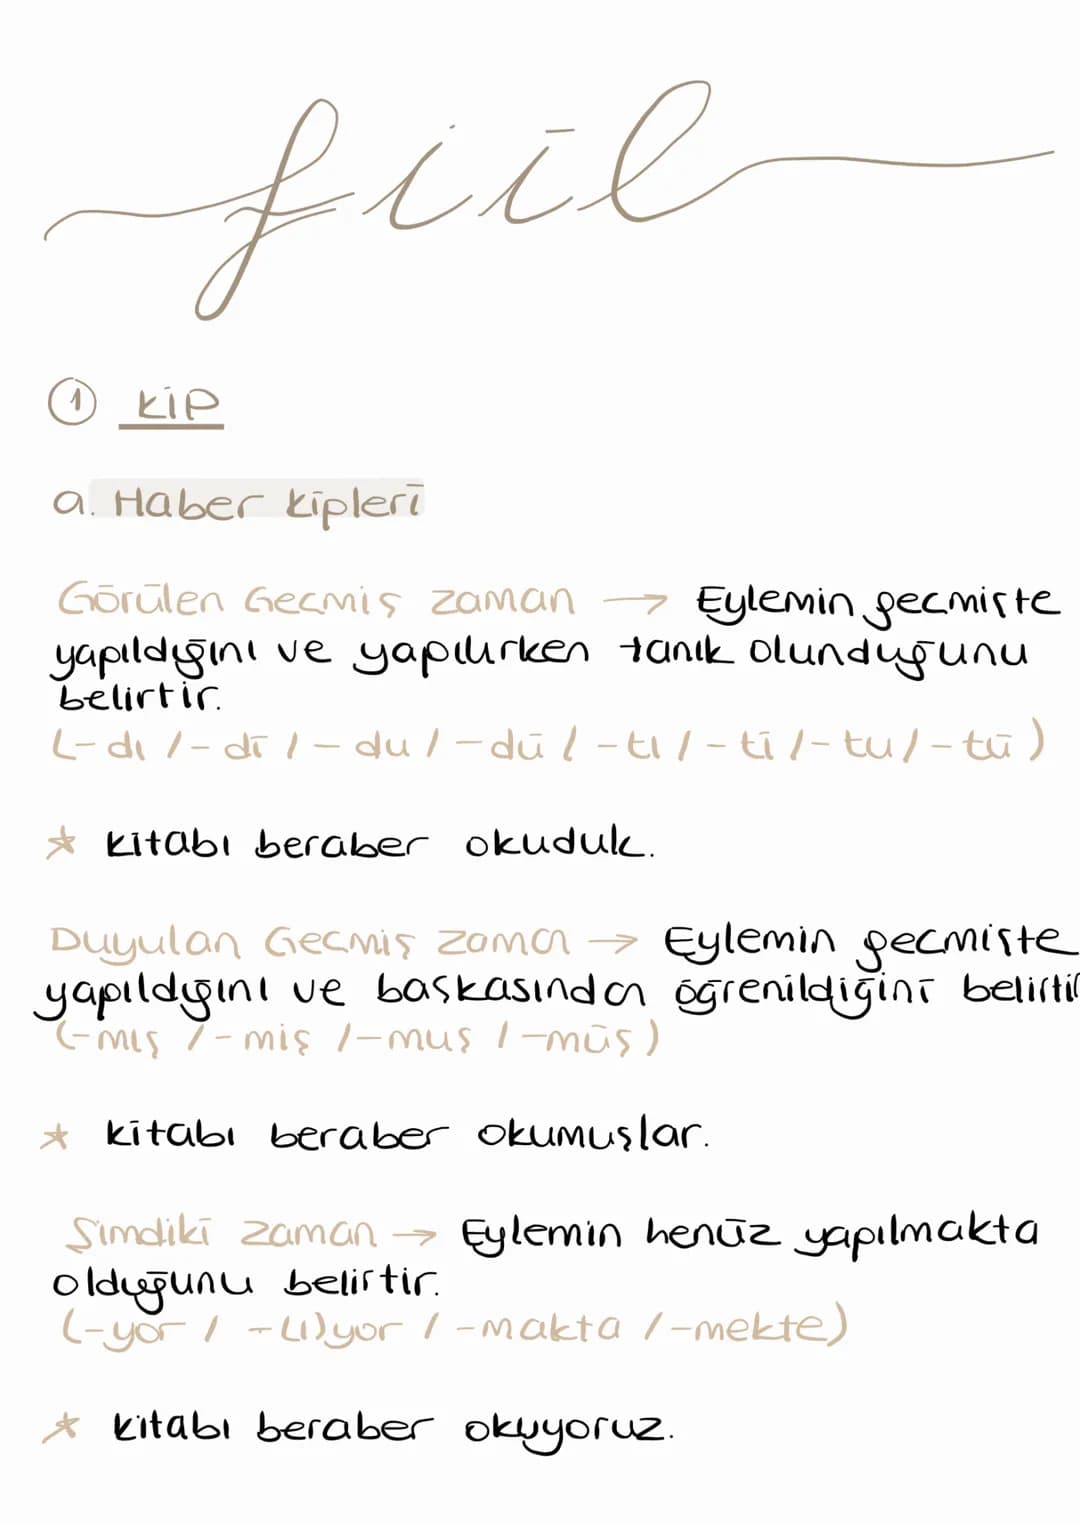 fiil
1 KİP
a. Haber kipleri
Görülen Gecmiş zaman → Eylemin gecmişte
yapıldığını ve yapılırken tanık olunduğunu
belirtir.
(-dı /-di / -du / -dü / -tı / -ti /-tu / -tü)
☆ kitabı beraber okuduk.
Duyulan Gecmiş zaman → Eylemin gecmişte
yapıldığını ve başkasından öğrenildiğini belirtir
(-mış /-miş /-muş /-müş)
☆ kitabı beraber okumuşlar.
Şimdiki zaman → Eylemin henüz yapılmakta
olduğunu belirtir.
(-yor / -(ı)yor / -makta /-mekte)
☆ kitabı beraber okuyoruz.